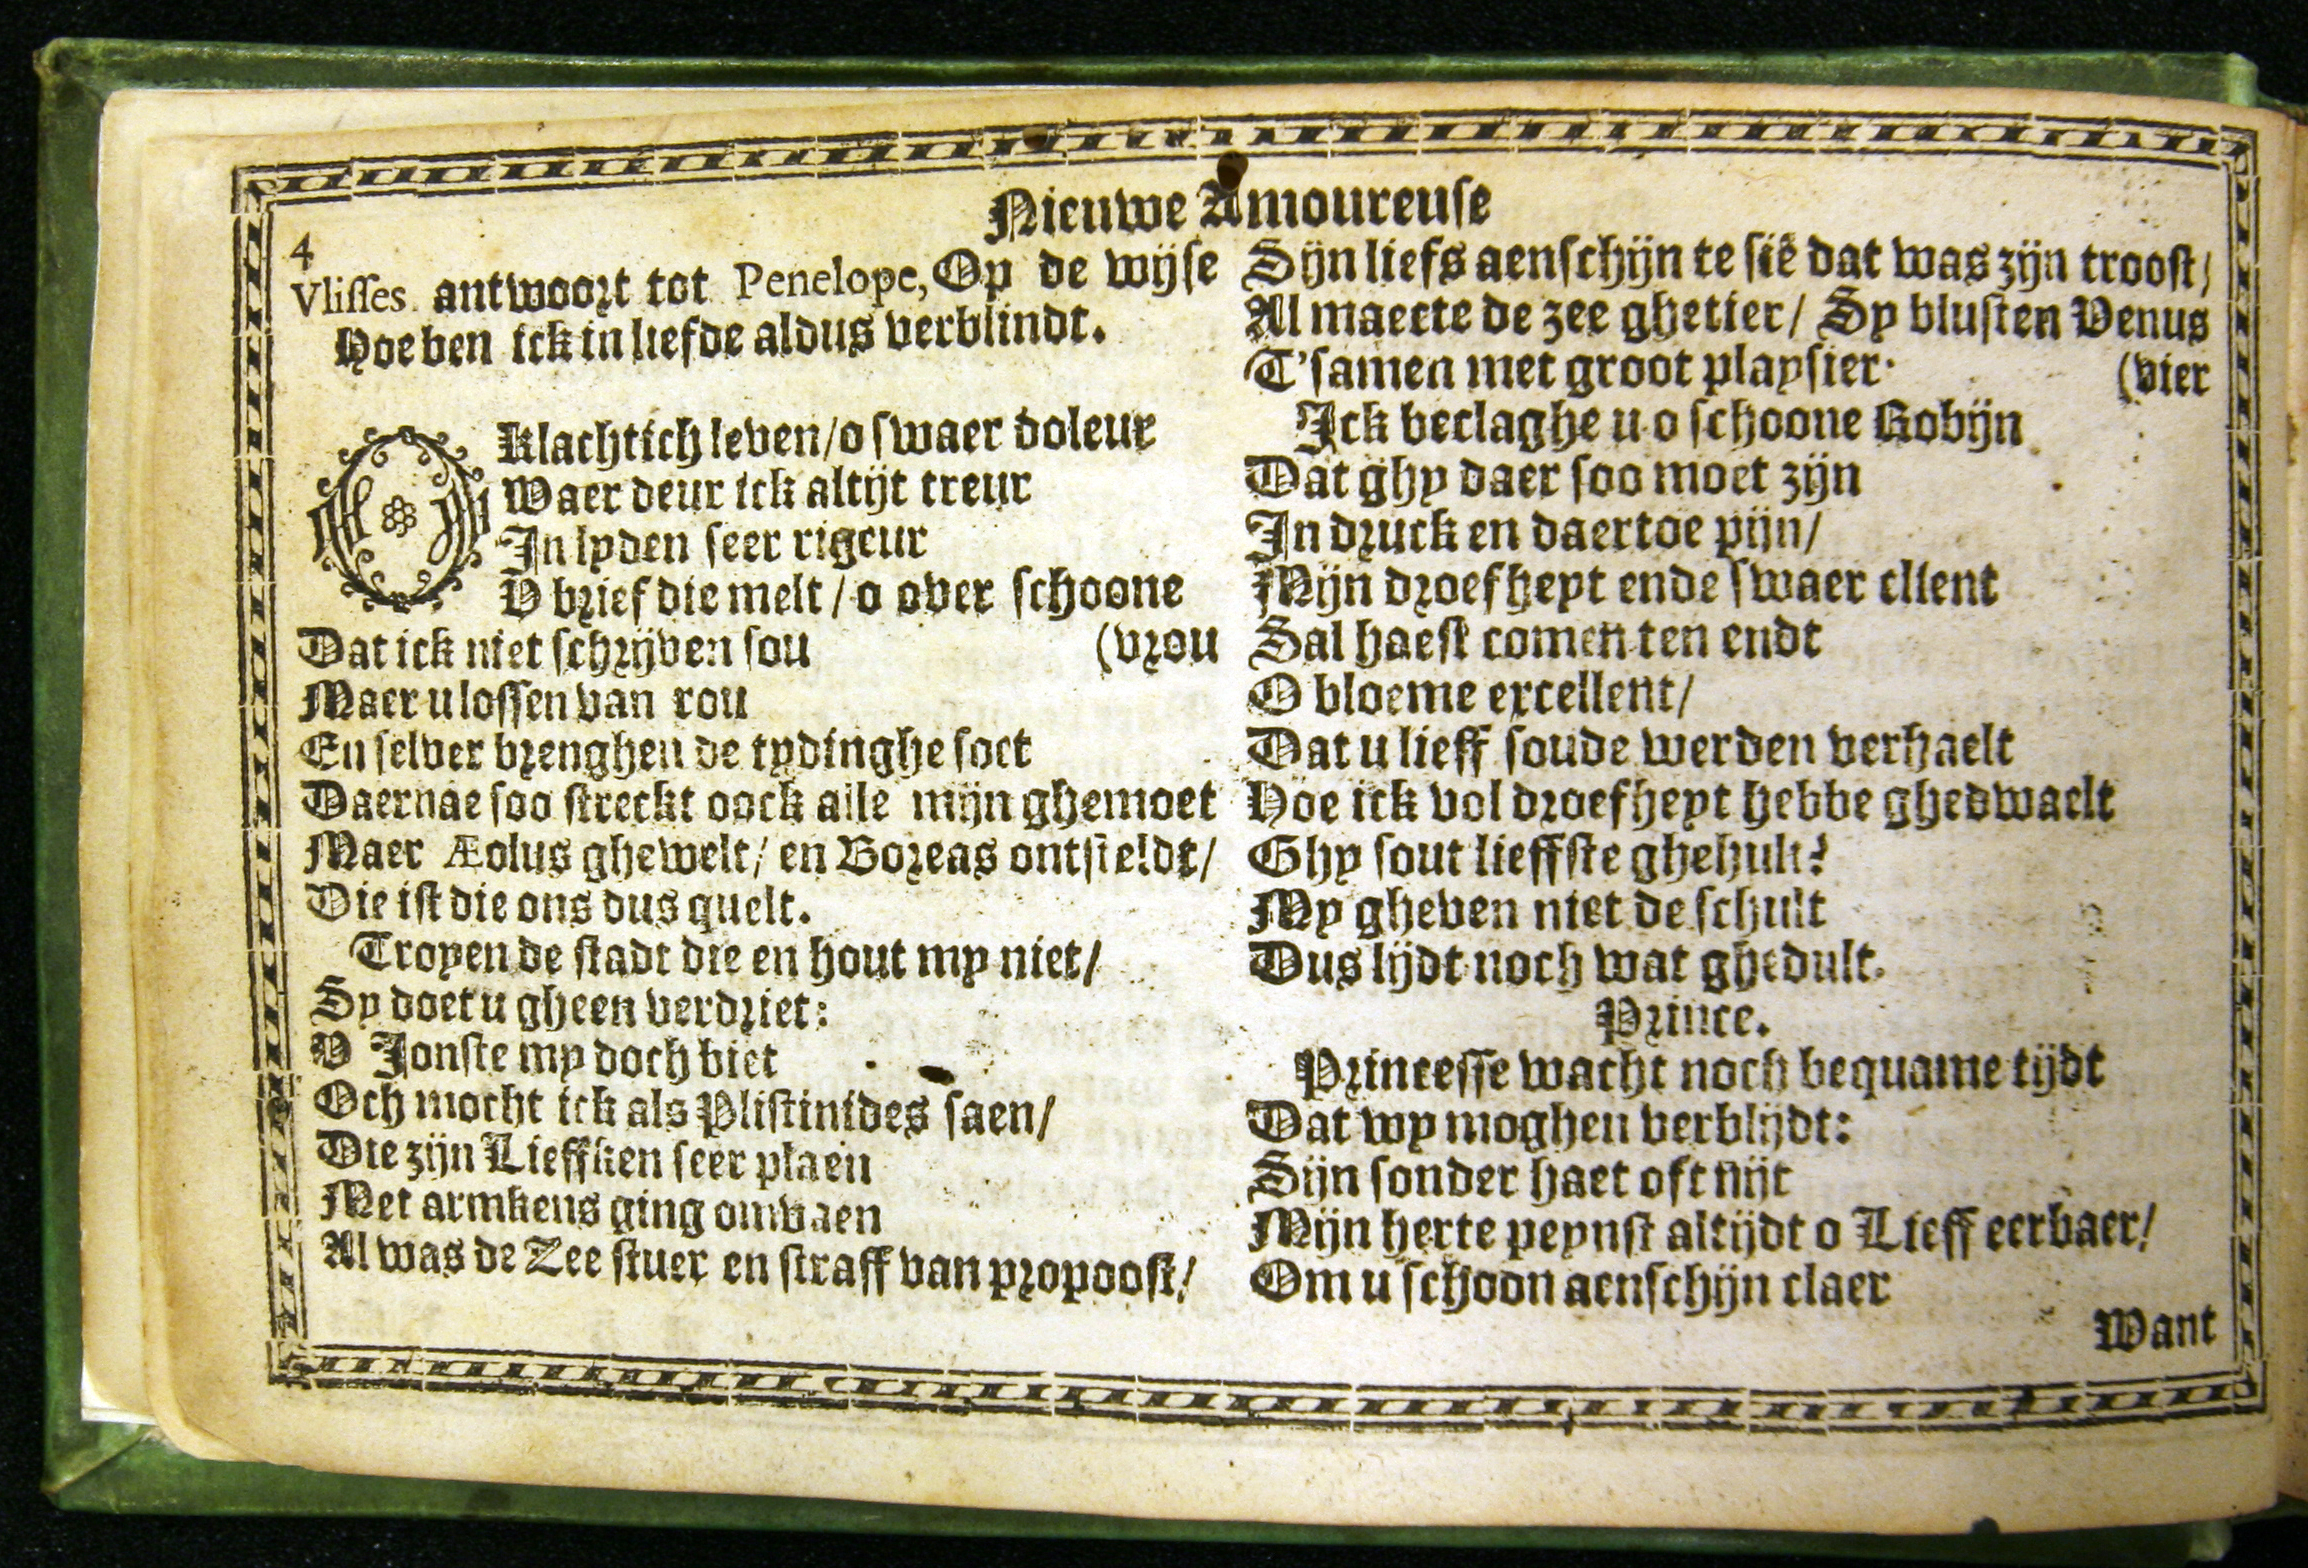 Nieuwe Amoureuse
4
Vlisses antwoort tot Penelope, Op de wijse
Hoe ben ick in liefde aldus verblindt.
O Klachtich leven/ o swaer doleur
Waer deur ick altijt treur
In lyden seer rigeur
V brief die melt / o over schoone
Dat ick niet schrijven sou (vrou
Maer u lossen van rou
En selver brenghen de tydinghe soet
Daernae soo streckt oock alle mijn ghemoet
Maer Æolus ghewelt/ en Boreas ontsteldt/
Die ist die ons dus quelt.
Troyen de stadt die en hout my niet/
Sy doet u gheen verdriet:
V Jonste my doch biet
Och mocht ick als Plistinides saen/
Die zijn Lieffken seer plaen
Met armkens ging omvaen
Al was de Zee stuer en straff van propoost/
Sijn liefs aenschijn te siē dat was zijn troost/
Al maecte de zee ghetier/ Sy blusten Venus
T'samen met groot playsier· (vier
Ick beclaghe u o schoone Robijn
Dat ghy daer soo moet zijn
In druck en daertoe pijn/
Mijn droefheyt ende swaer ellent
Sal haest comen ten endt
O bloeme excellent/
Dat u lieff soude werden verhaelt
Hoe ick vol droefheyt hebbe ghedwaelt
Ghy sout lieffste ghehult?
My gheven niet de schult
Dus lijdt noch wat ghedult.
Prince.
Princesse wacht noch bequame tijdt
Dat wy moghen verblijdt:
Sijn sonder haet oft nijt
Mijn herte peynst altijdt o Lieff eerbaer/
Om u schoon aenschijn claer
Want